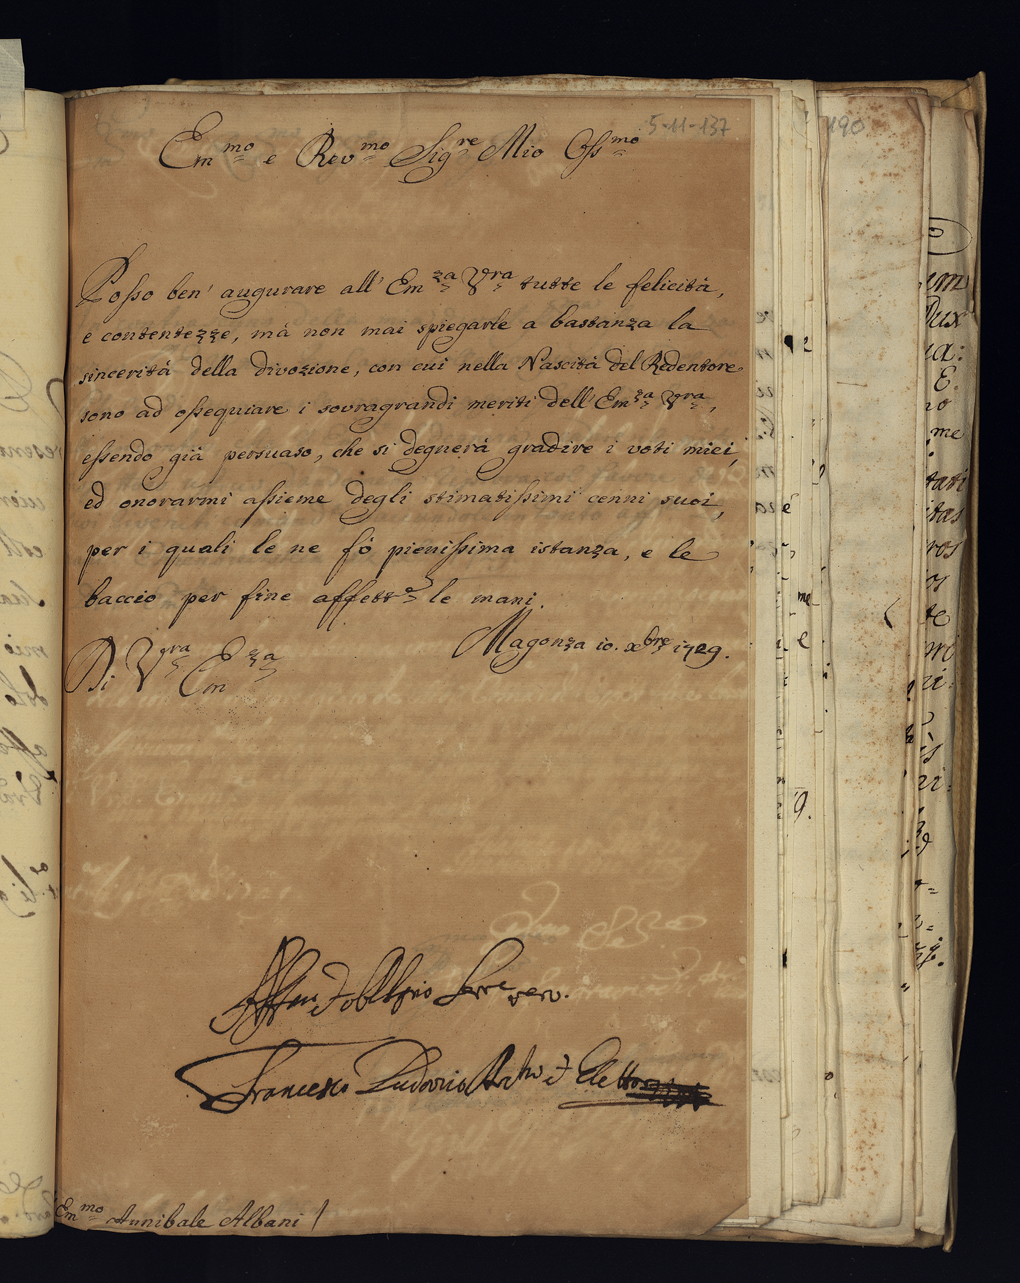 5-11-137
190
Em.mo e Rev.mo Sig.re Mio Oss.mo
Posso ben' augurare all' Em.za V.ra tutte le felicità,
e contentezze, mà non mai spiegarle a bastanza la
sincerità della divozione, con cui nella Nascità del Redentore
sono ad ossequiare i sovragrandi meriti dell' Em.za V.ra,
essendo già persuaso, che si degnerà gradire i voti miei,
ed onorarmi assieme degli stimatissimi cenni suoi,
per i quali le ne fó pienissima istanza, e le
baccio per fine affett.e le mani.
Di V.ra Em.za
Magonza 10. xbre 1729.
Serre
Francesco Ludovico
Em.mo Annibale Albani /